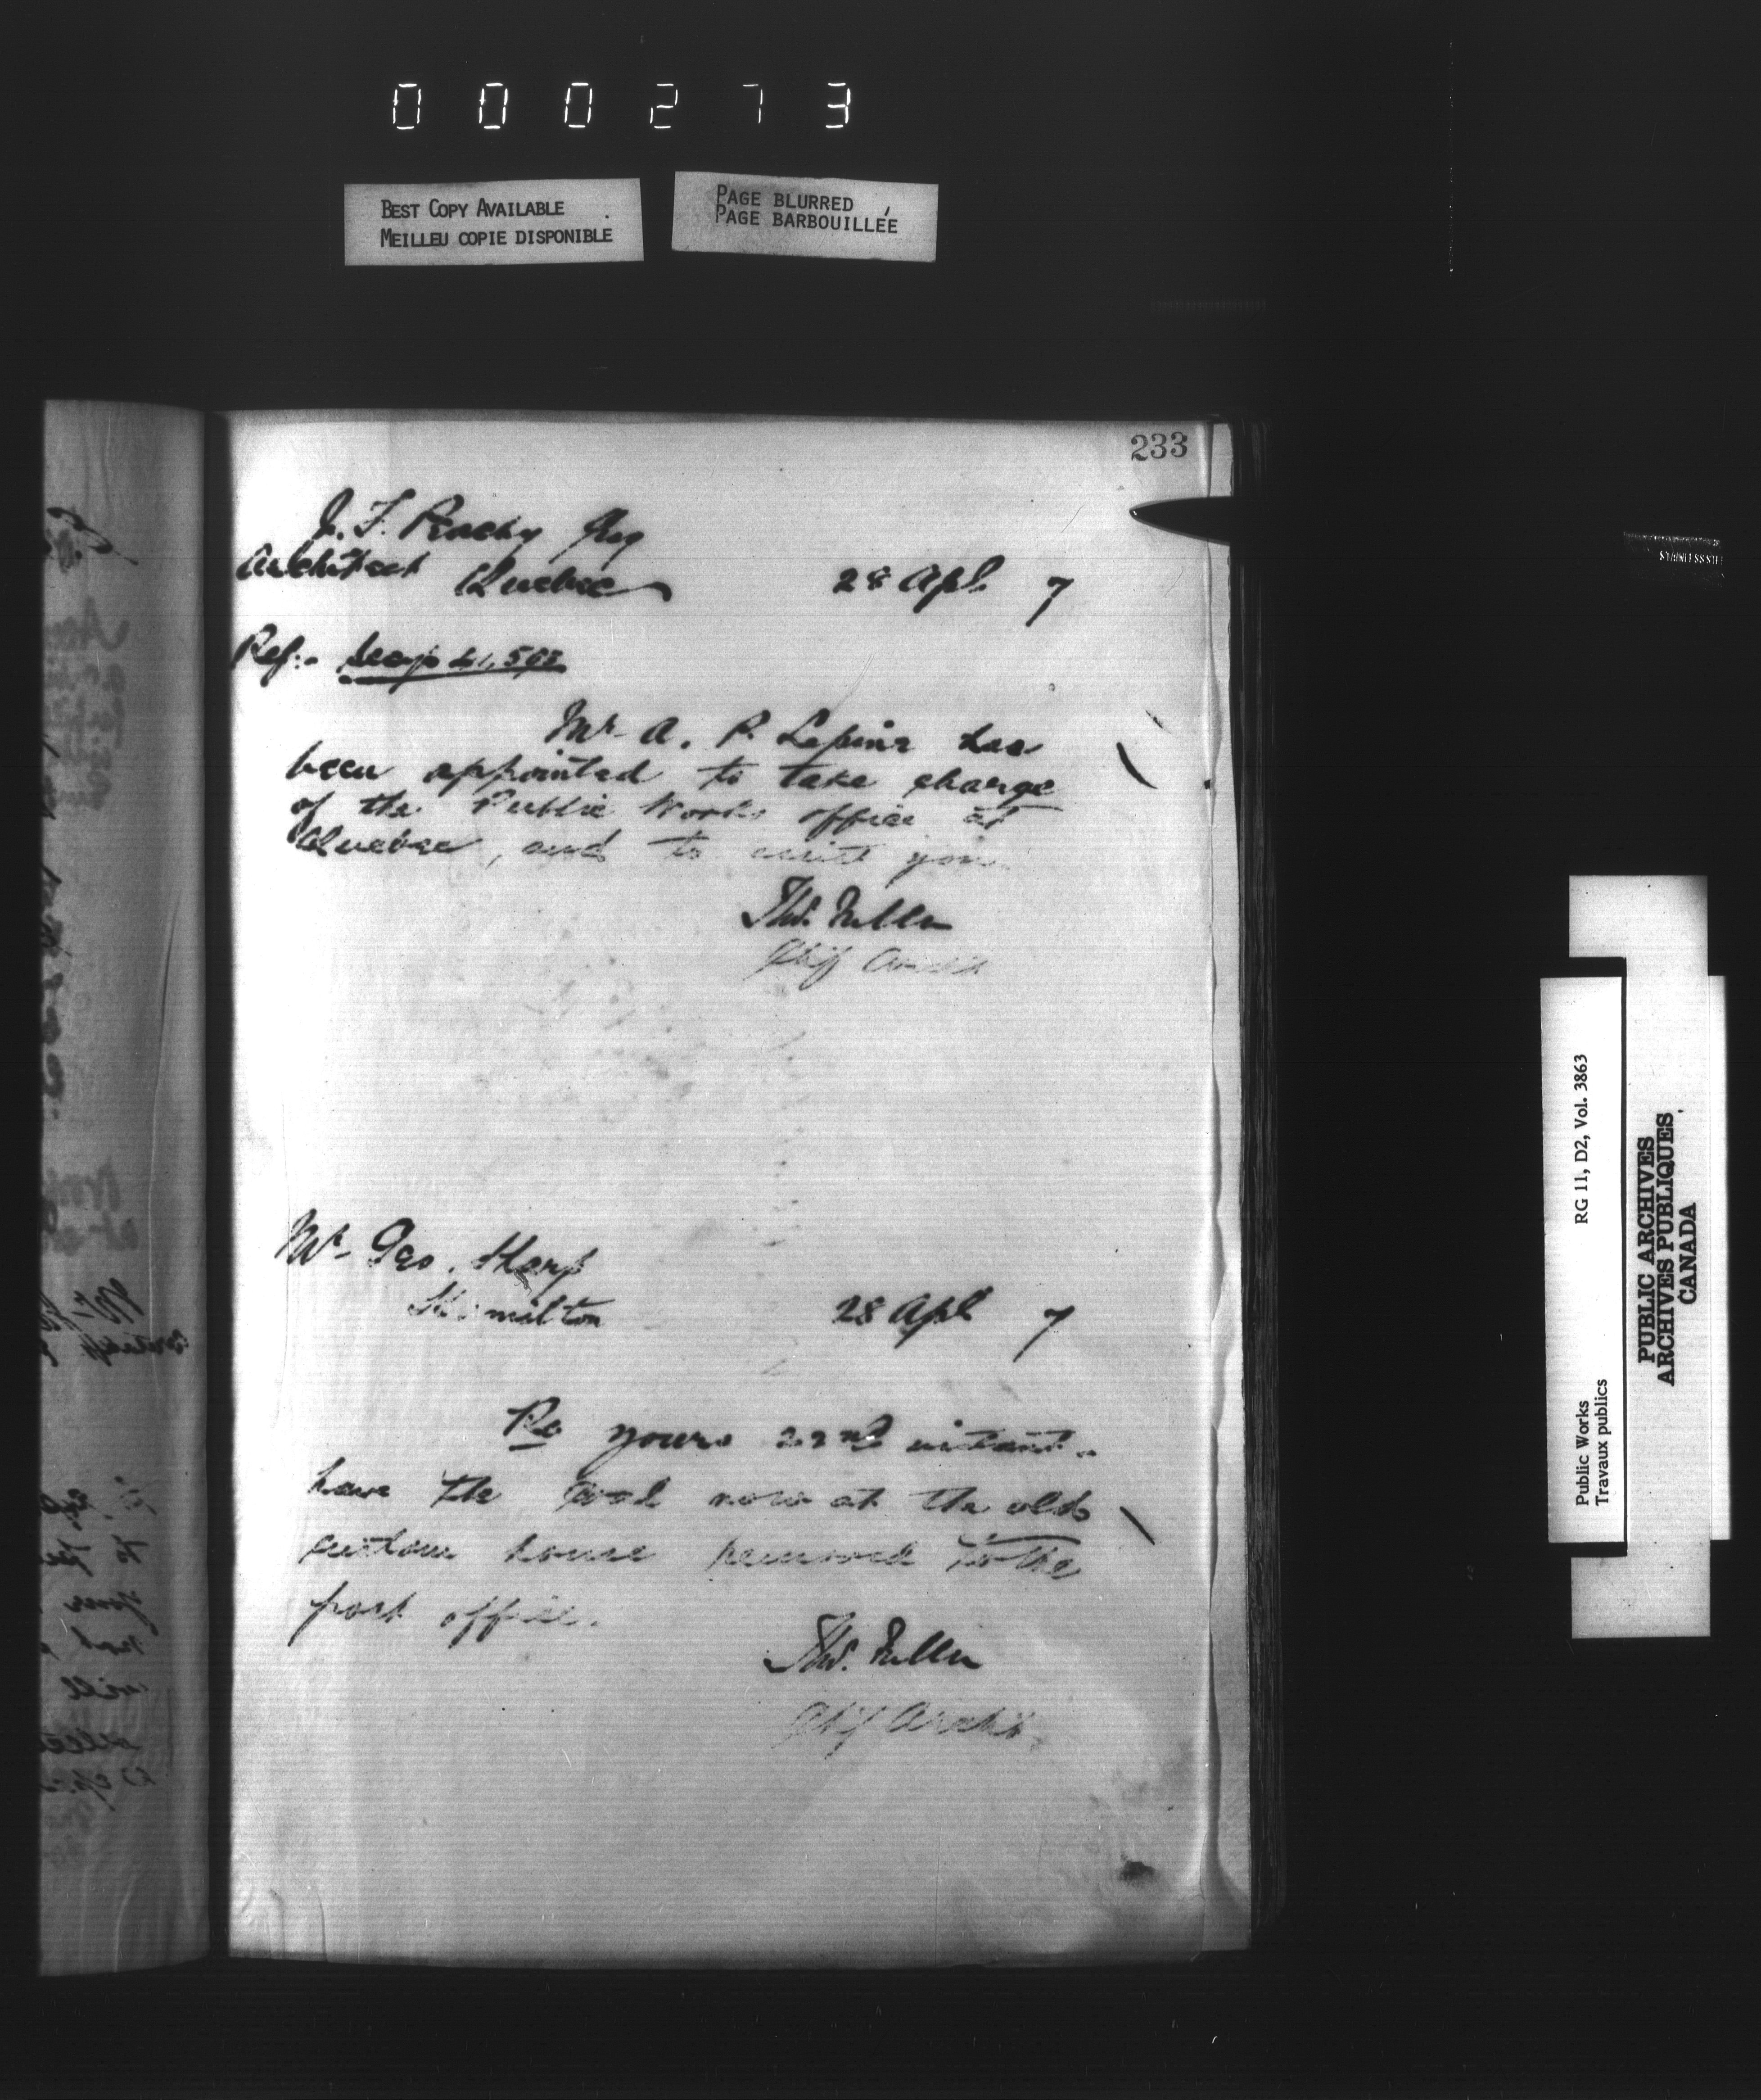 000273
BEST COPY AVAILABLE
MEILLEU COPIE DISPONIBLE
PAGE BLURRED
PAGE BARBOUILLÉE
233
J. F. Peachy Esq
Architect Quebec 28 Apl 7
Ref:-
Mr A. P. Lepine has
been appointed to take charge
of the Public Works office at
Quebec, and to assist you
Thos. Fuller
Chf Archt
Mr Geo. Sharp
Hamilton 28 Apl 7
Re yours 22nd instant.
have the coal now at the old
custom house removed to the
post office.
Thos. Fuller
Chf Archt.
Public Works
Travaux publics
RG 11, D2, Vol. 3863
PUBLIC ARCHIVES
ARCHIVES PUBLIQUES
CANADA